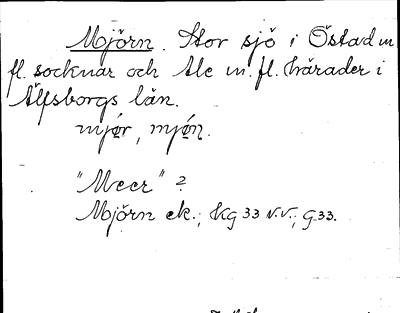 Mjörn. Stor sjö i Östad m
fl. socknar och Ale m. fl. härader i
Älfsborgs län.
mjør, mjøn.
"Meer" ?
Mjörn ek.; KG 33 N.V.; G 33.